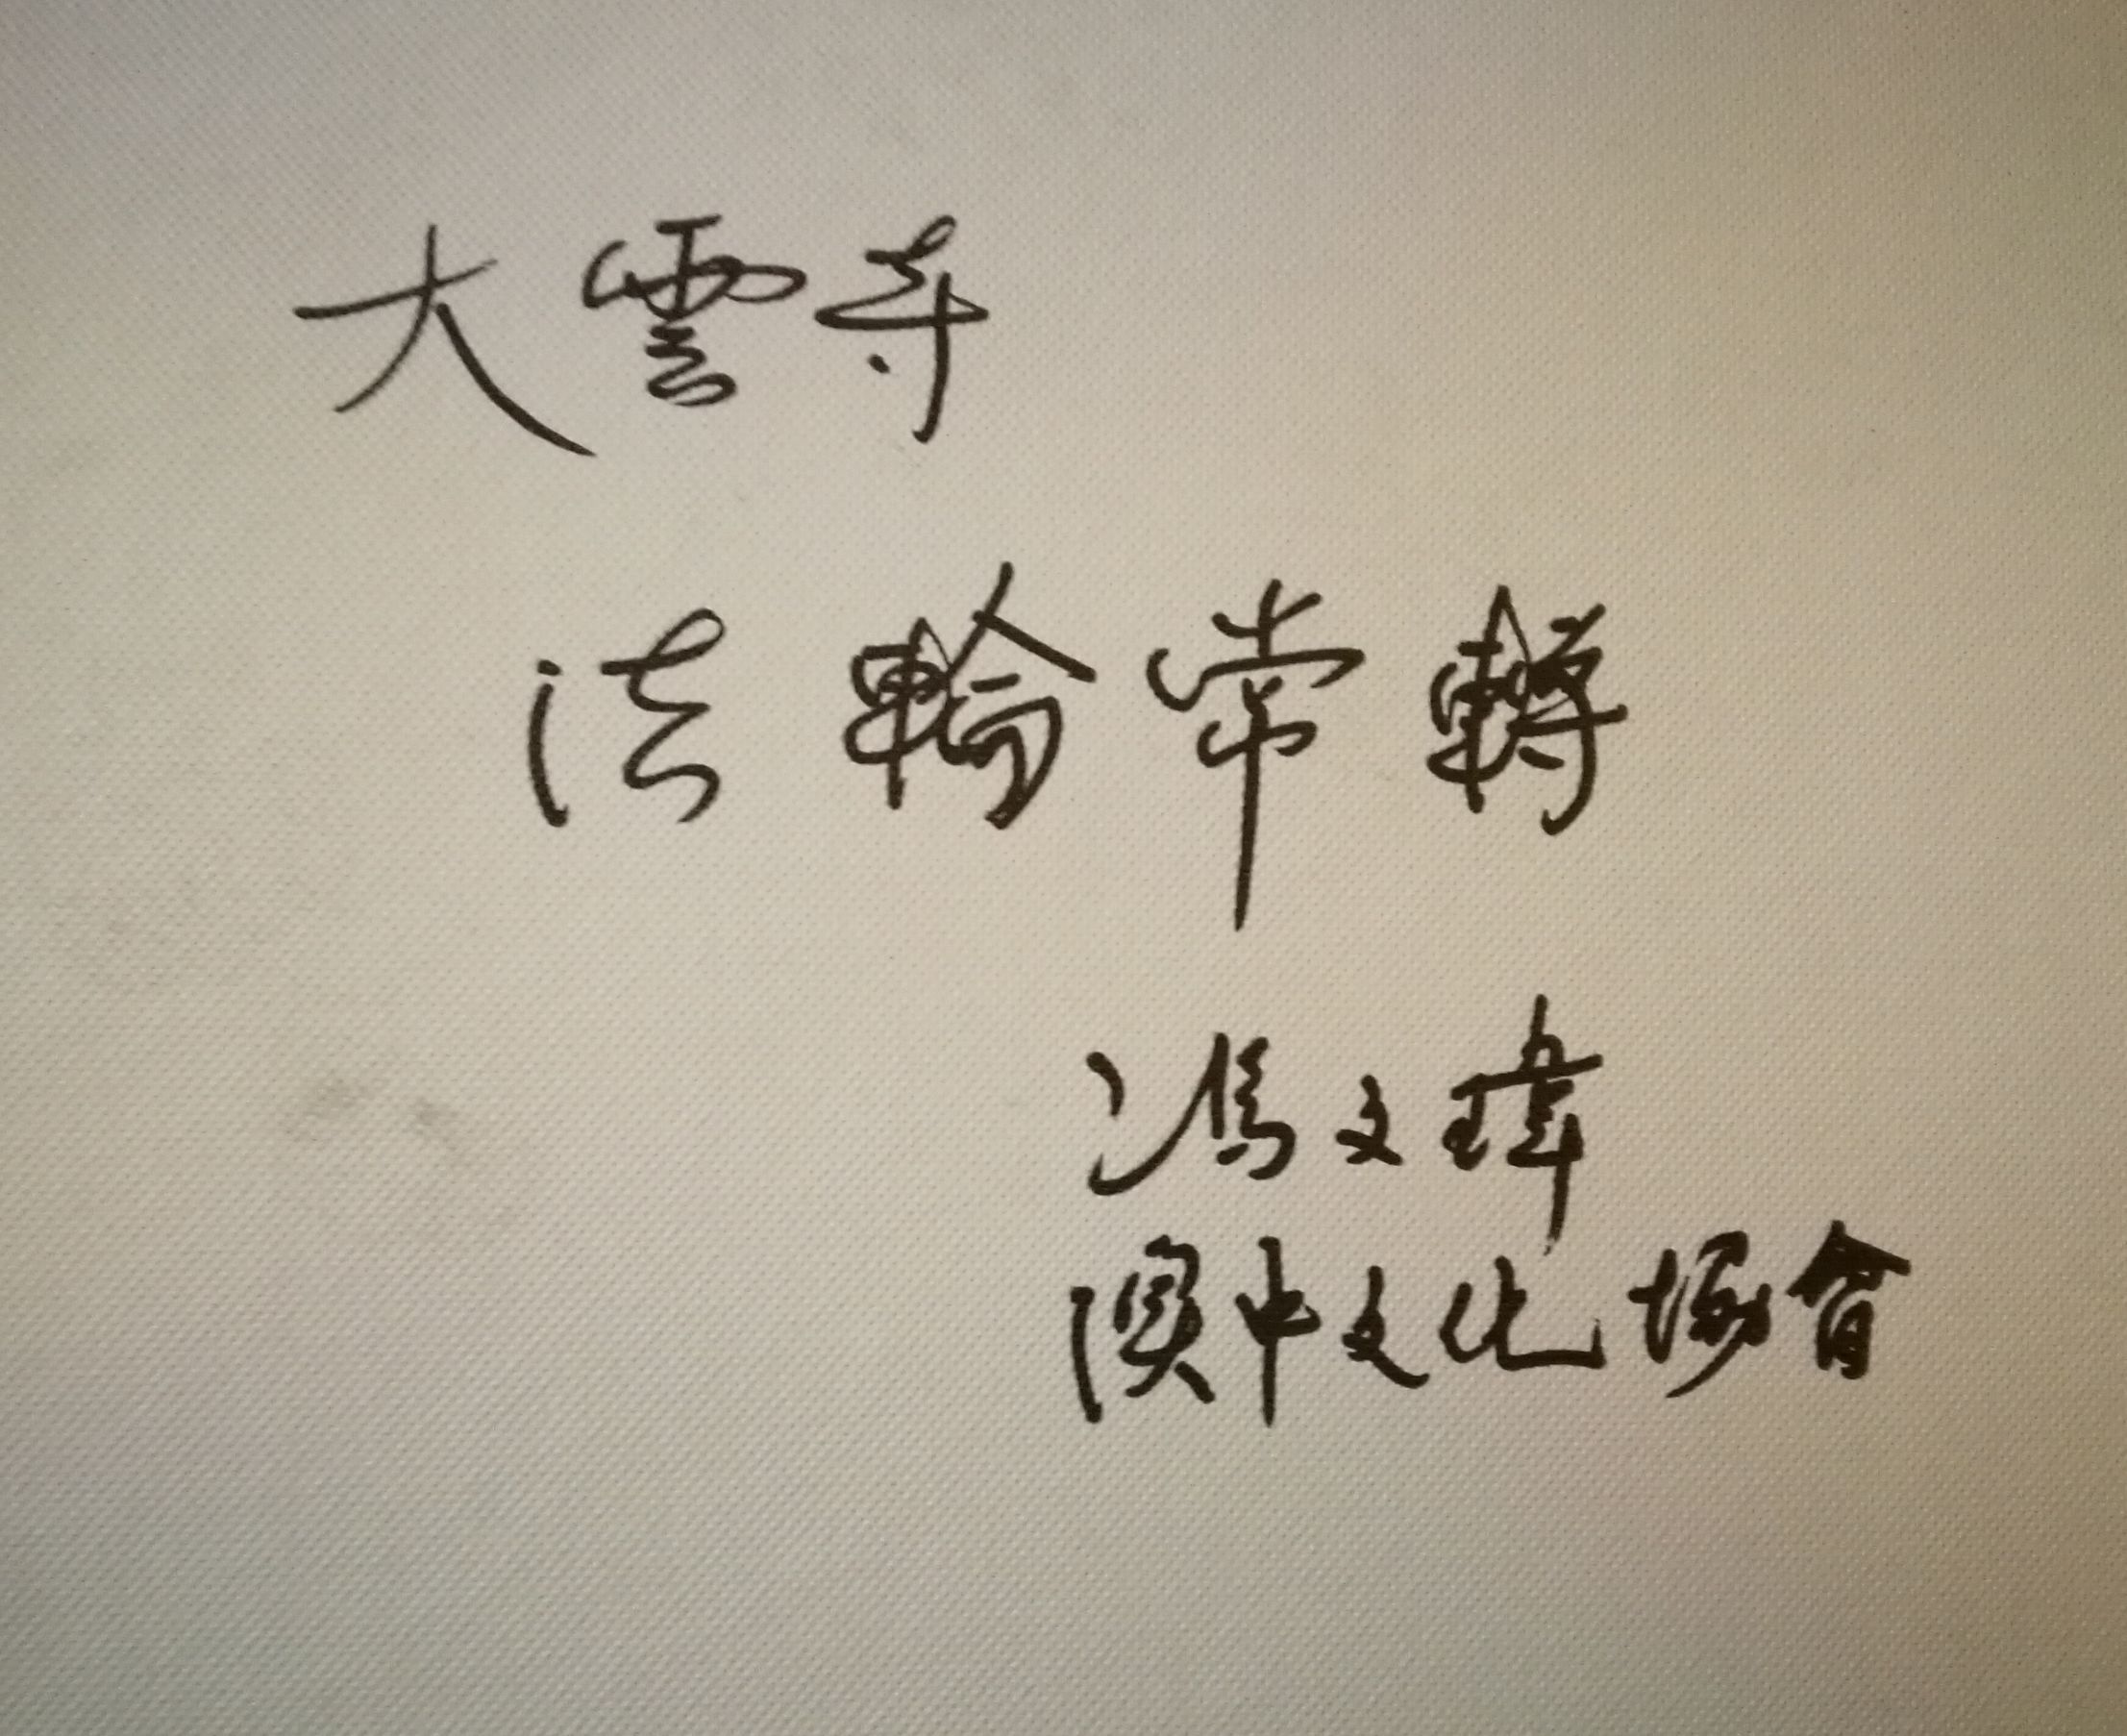 大雲寺
法輪常轉
馮文瑋
澳中文化協會